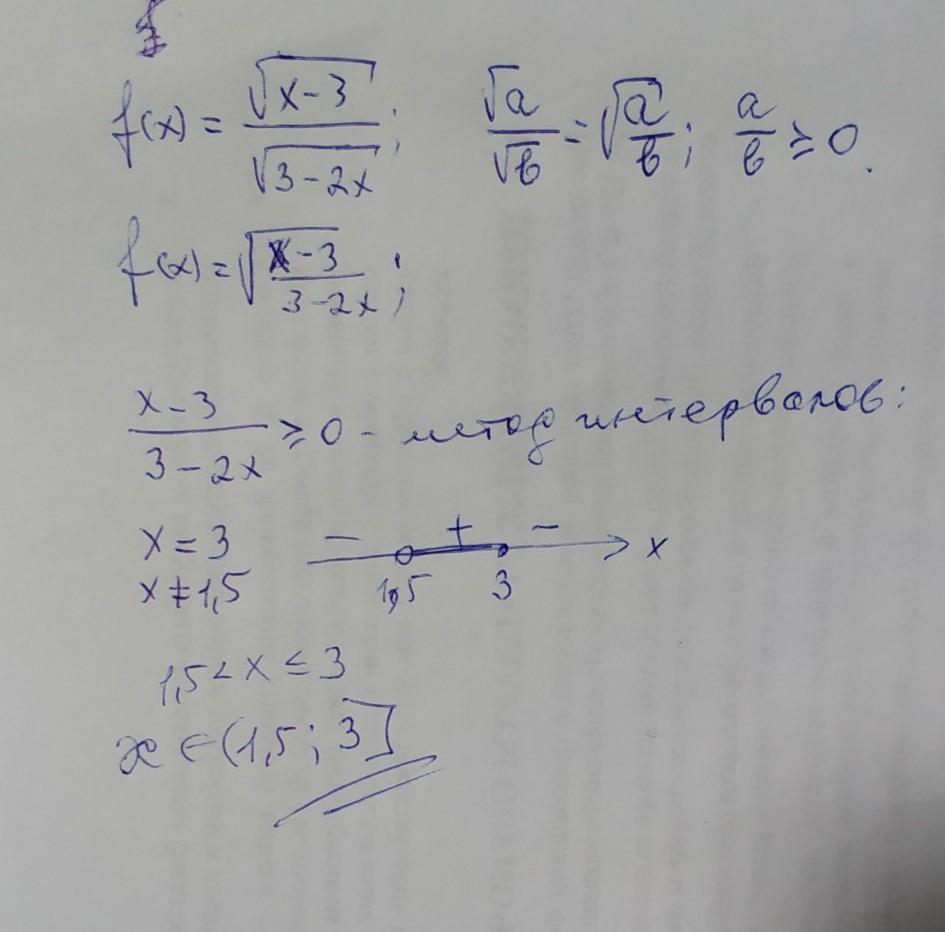 f(x) = √(x-3) / √(3-2x); √a / √b = √(a/b); a/b ≥ 0.
f(x) = √((x-3)/(3-2x));
(x-3)/(3-2x) ≥ 0 - метод интервалов:
x = 3
x ≠ 1,5
- + - x
1,5 3
1,5 < x ≤ 3
x ∈ (1,5; 3]